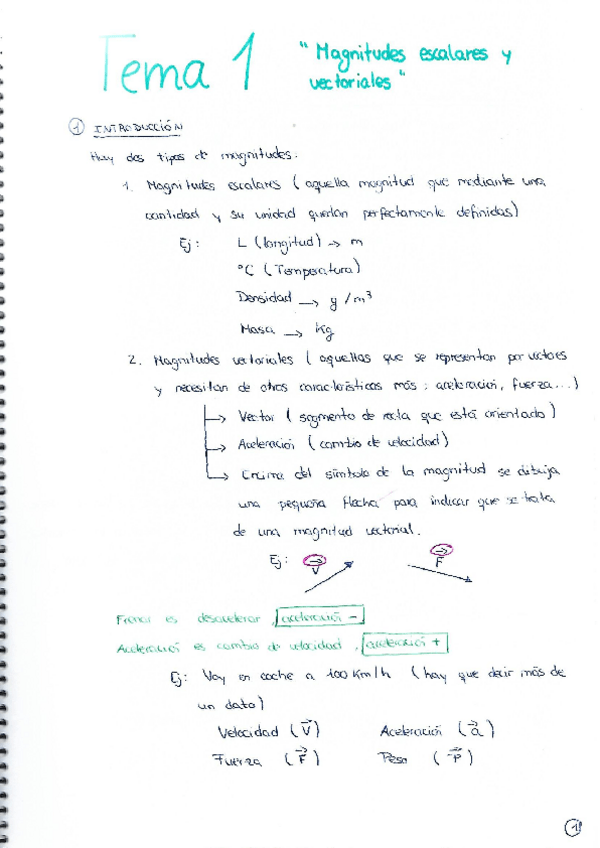 Tema 1 "Magnitudes escalares y
vectoriales"
① INTRODUCCIÓN
Hay dos tipos de magnitudes:
1. Magnitudes escalares (aquella magnitud que mediante una
cantidad y su unidad quedan perfectamente definidas)
Ej: L (longitud) → m
°C (Temperatura)
Densidad → g/m³
Masa → Kg
2. Magnitudes vectoriales (aquellas que se representan por vectores
y necesitan de otros características más: aceleración, fuerza...)
→ Vector (segmento de recta que está orientado)
→ Aceleración (cambio de velocidad)
→ Encima del símbolo de la magnitud se dibuja
una pequeña flecha para indicar que se trata
de una magnitud vectorial.
Ej: V⃗ F⃗
Frenar es desacelerar, aceleración -
Aceleración es cambio de velocidad, aceleración +
Ej: Voy en coche a 100 Km/h (hay que decir más de
un dato)
Velocidad (V⃗) Aceleración (a⃗)
Fuerza (F⃗) Peso (P⃗)
1